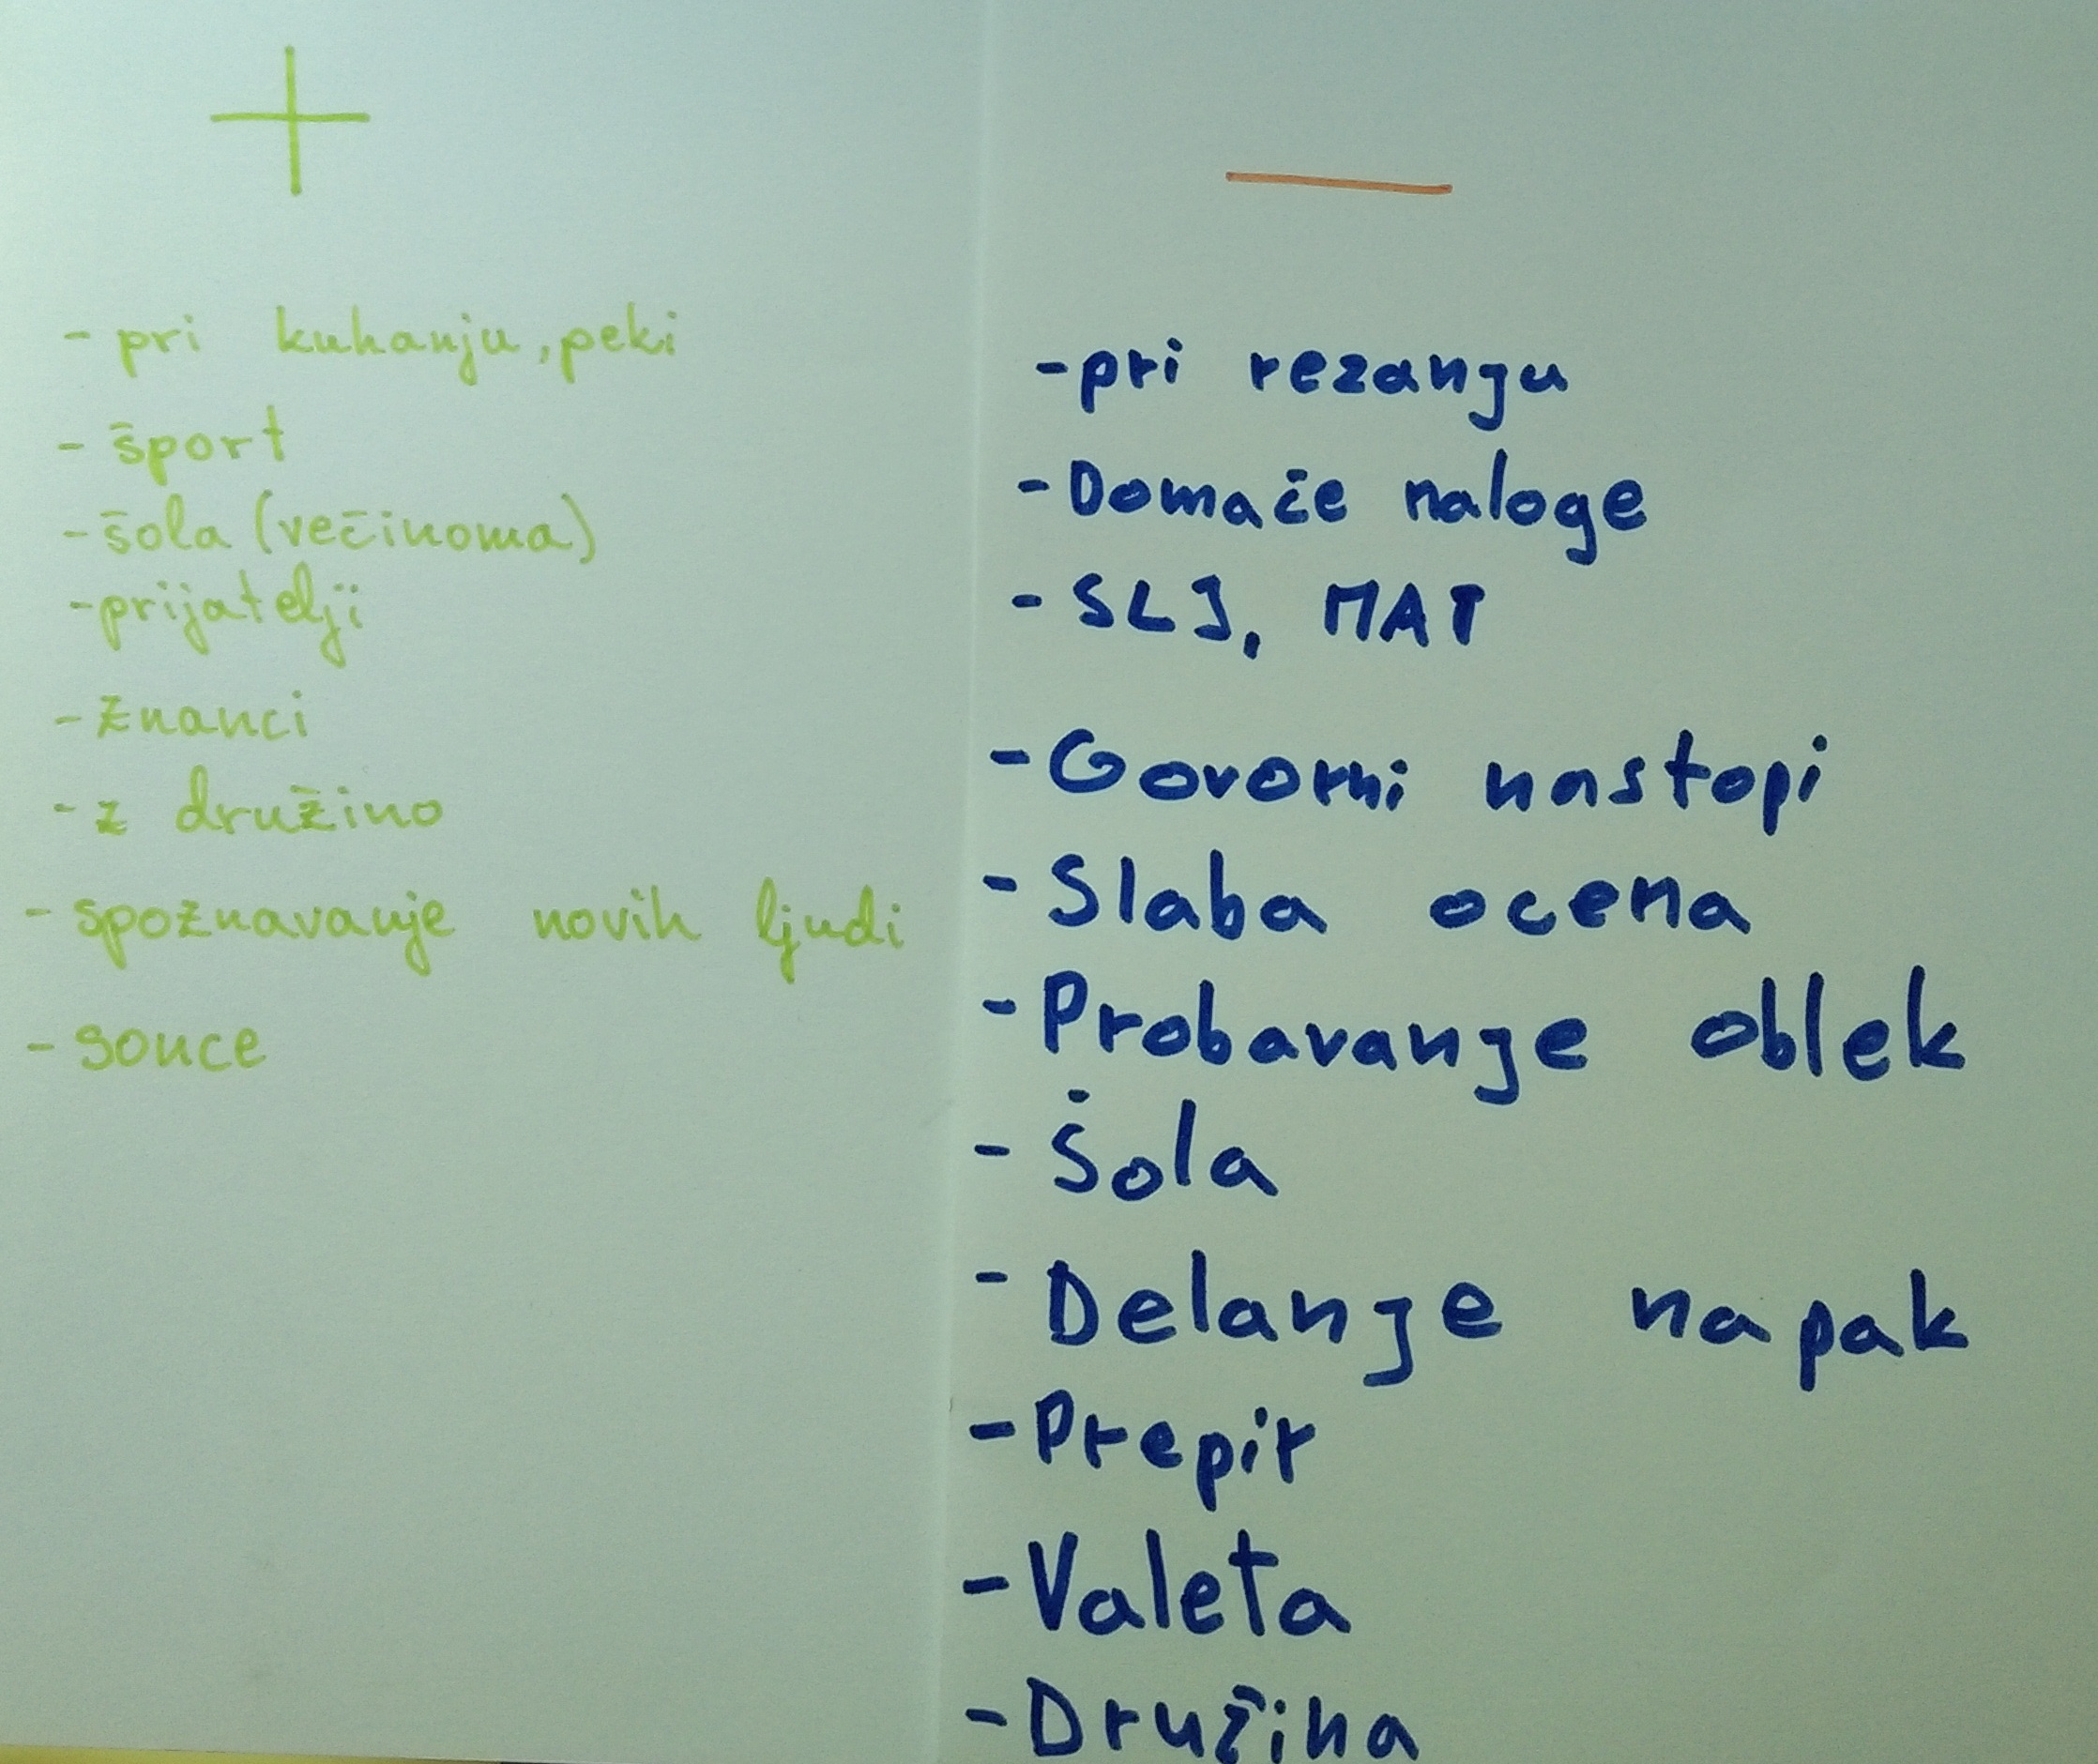 +
- pri kuhanju, peki
- šport
- šola (večinoma)
- prijatelji
- znanci
- z družino
- spoznavanje novih ljudi
- sonce
—
- pri rezanju
- Domače naloge
- SLJ, MAT
- Govorni nastopi
- Slaba ocena
- Probavanje oblek
- Šola
- Delanje napak
- Prepir
- Valeta
- Družina